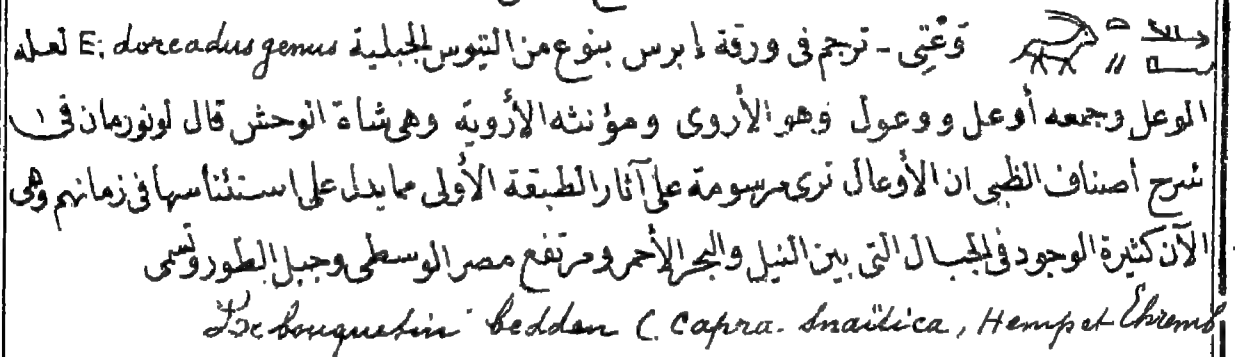 وَعْتِى - ترجم فى ورقة إبرس بنوع من التيوس الجبلية E; dorcadus genus لعله
الوعل وجمعه أوعل ووعول وهو الأروى ومؤنثه الأروية وهى شاة الوحش قال لونورمان فى ١
شرح أصناف الظبى ان الأوعال ترى مرسومة على آثار الطبقة الأولى مما يدل على استئناسها فى زمانهم وهى
الآن كثيرة الوجود فى الجبال التى بين النيل والبحر الأحمر ومرتفع مصر الوسطى وجبل الطور وتسمى
bouquetin bedden (Capra. Snaïtica, Hemp et Ehremb